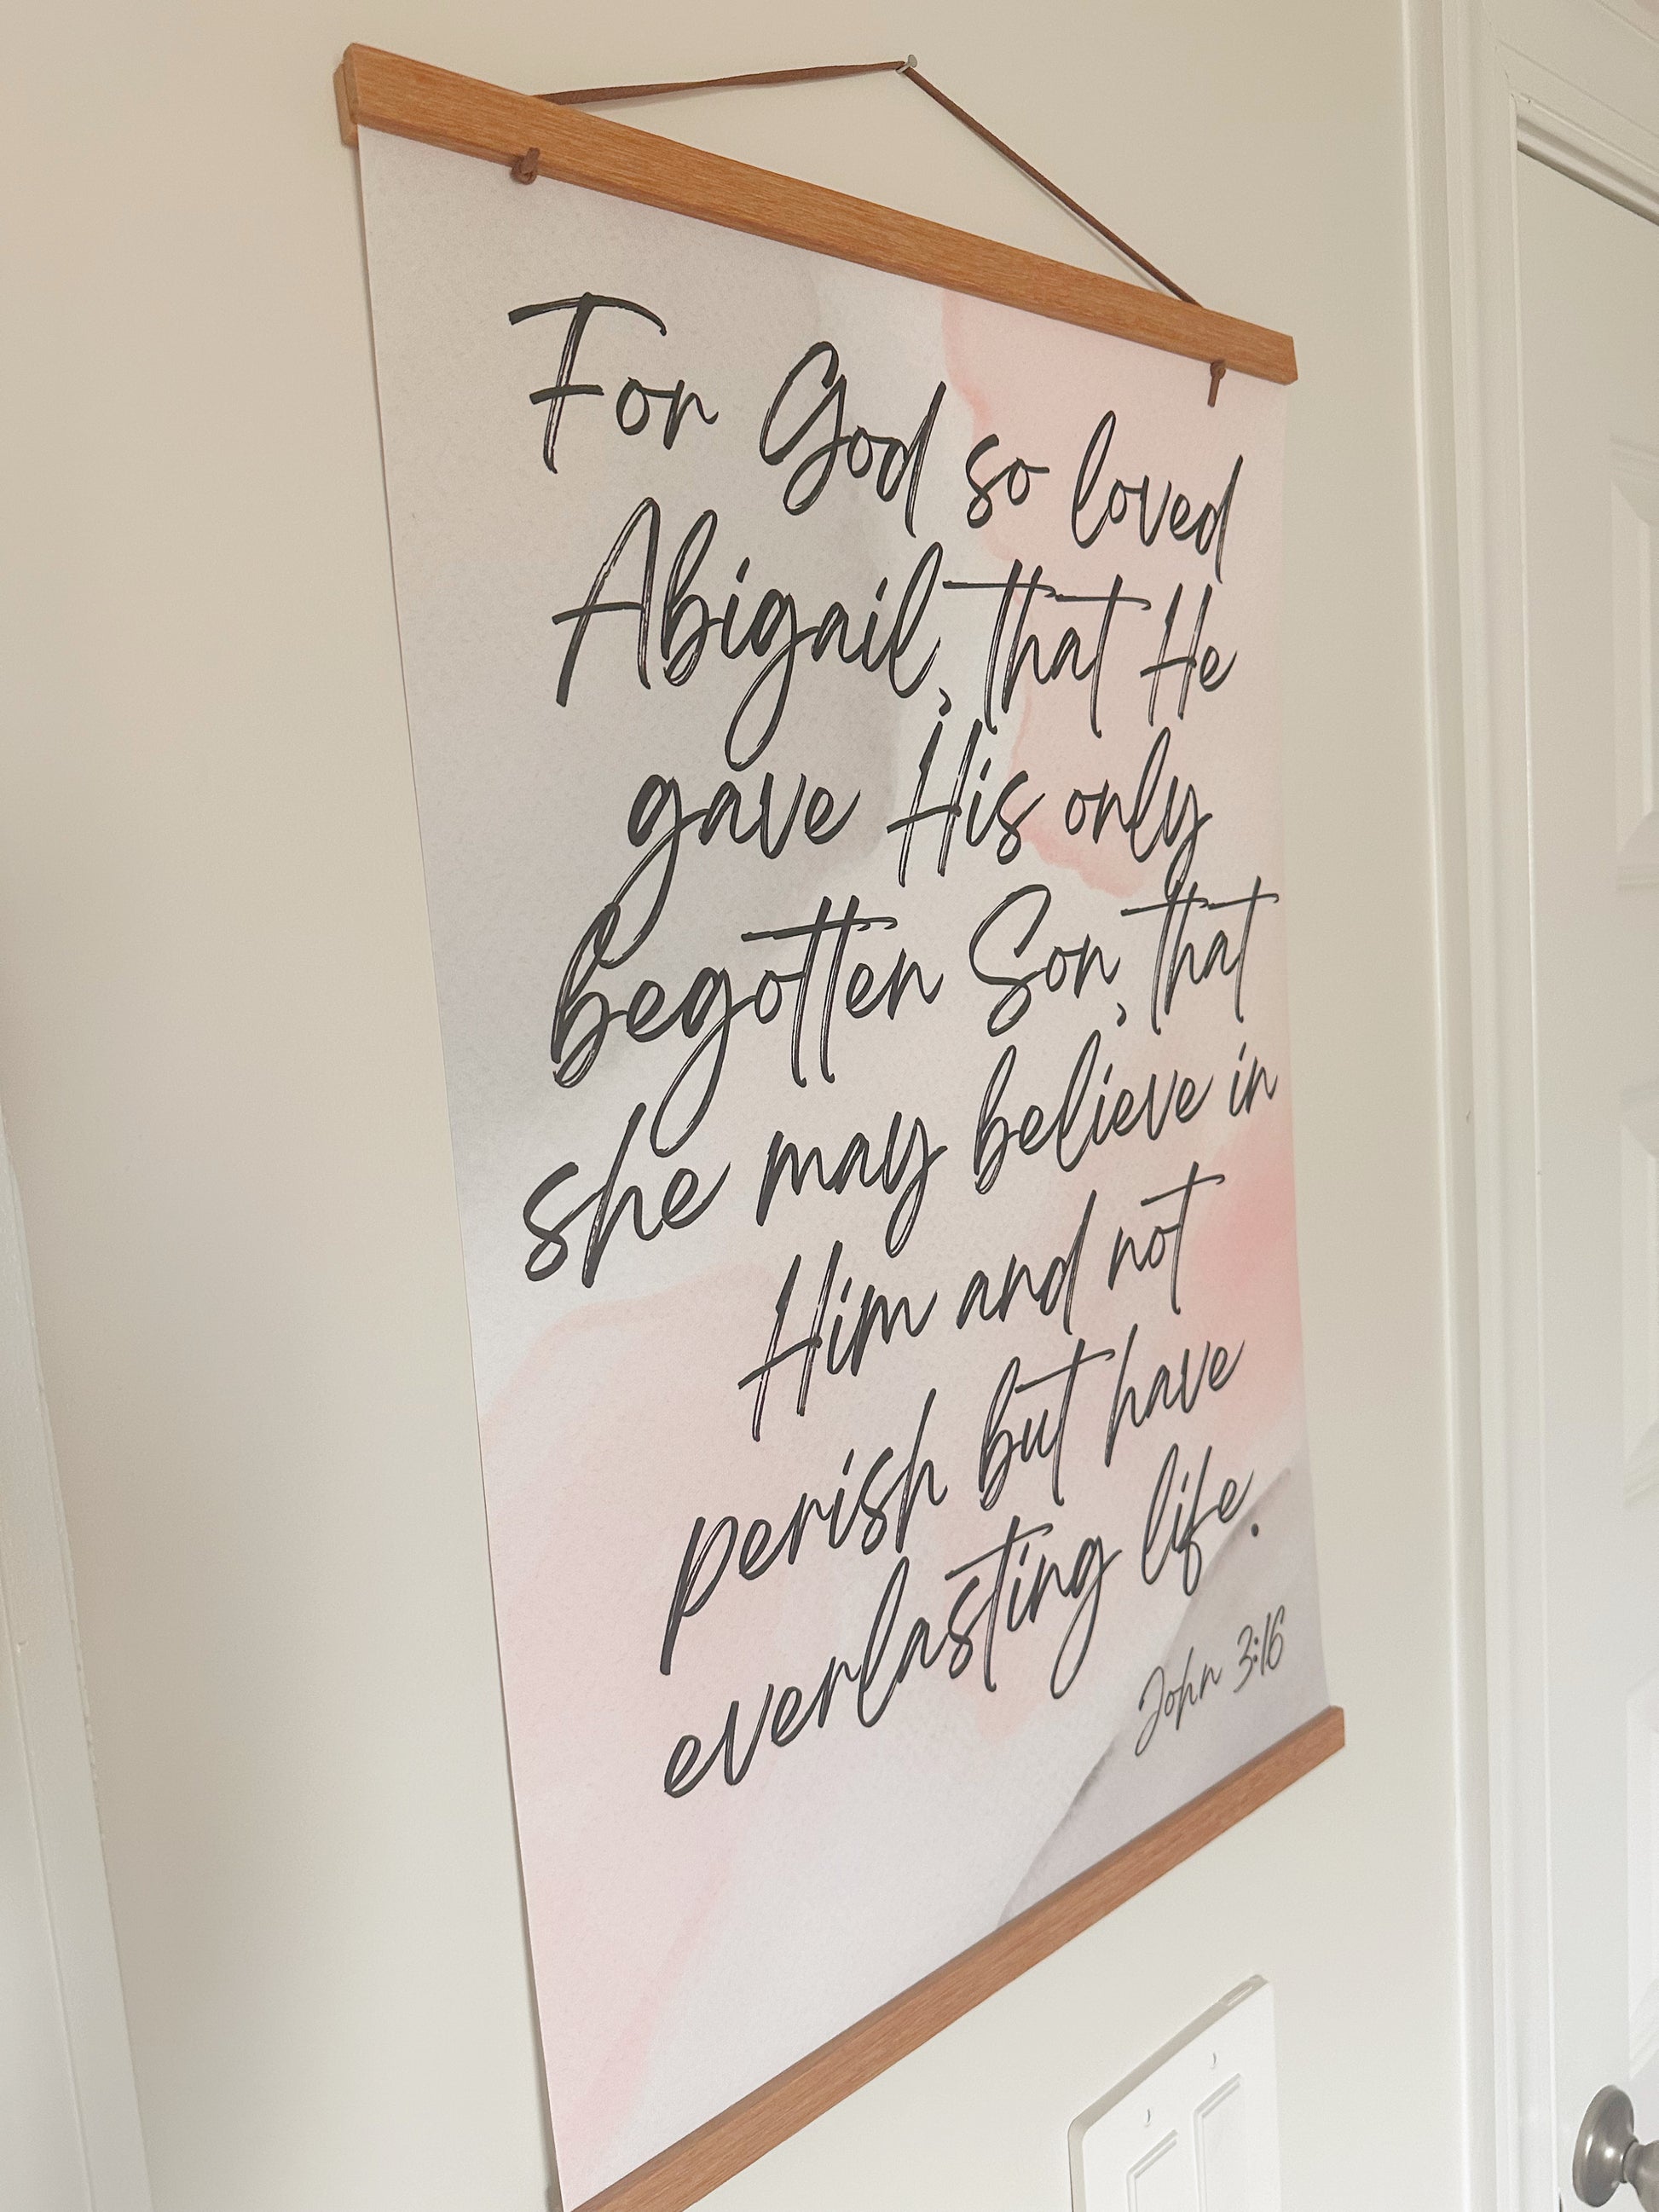 For God so loved
Abigail, that He
gave His only
begotten Son, that
she may believe in
Him and not
perish but have
everlasting life.
John 3:16